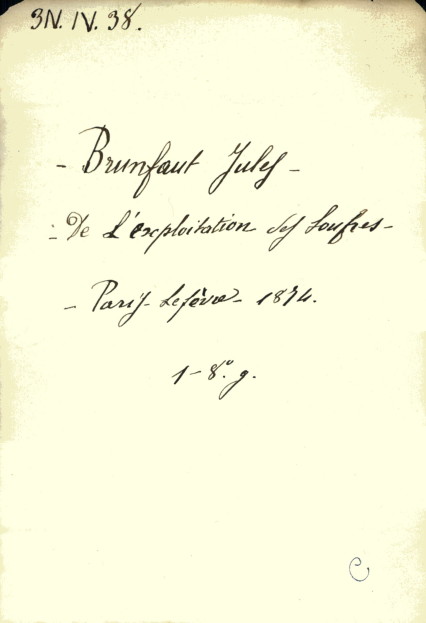 3N. IV. 38.
- Brunfaut Jules -
- De L'exploitation des Soufres -
- Paris - Lefèvre - 1874.
1 - 8.º g.
C